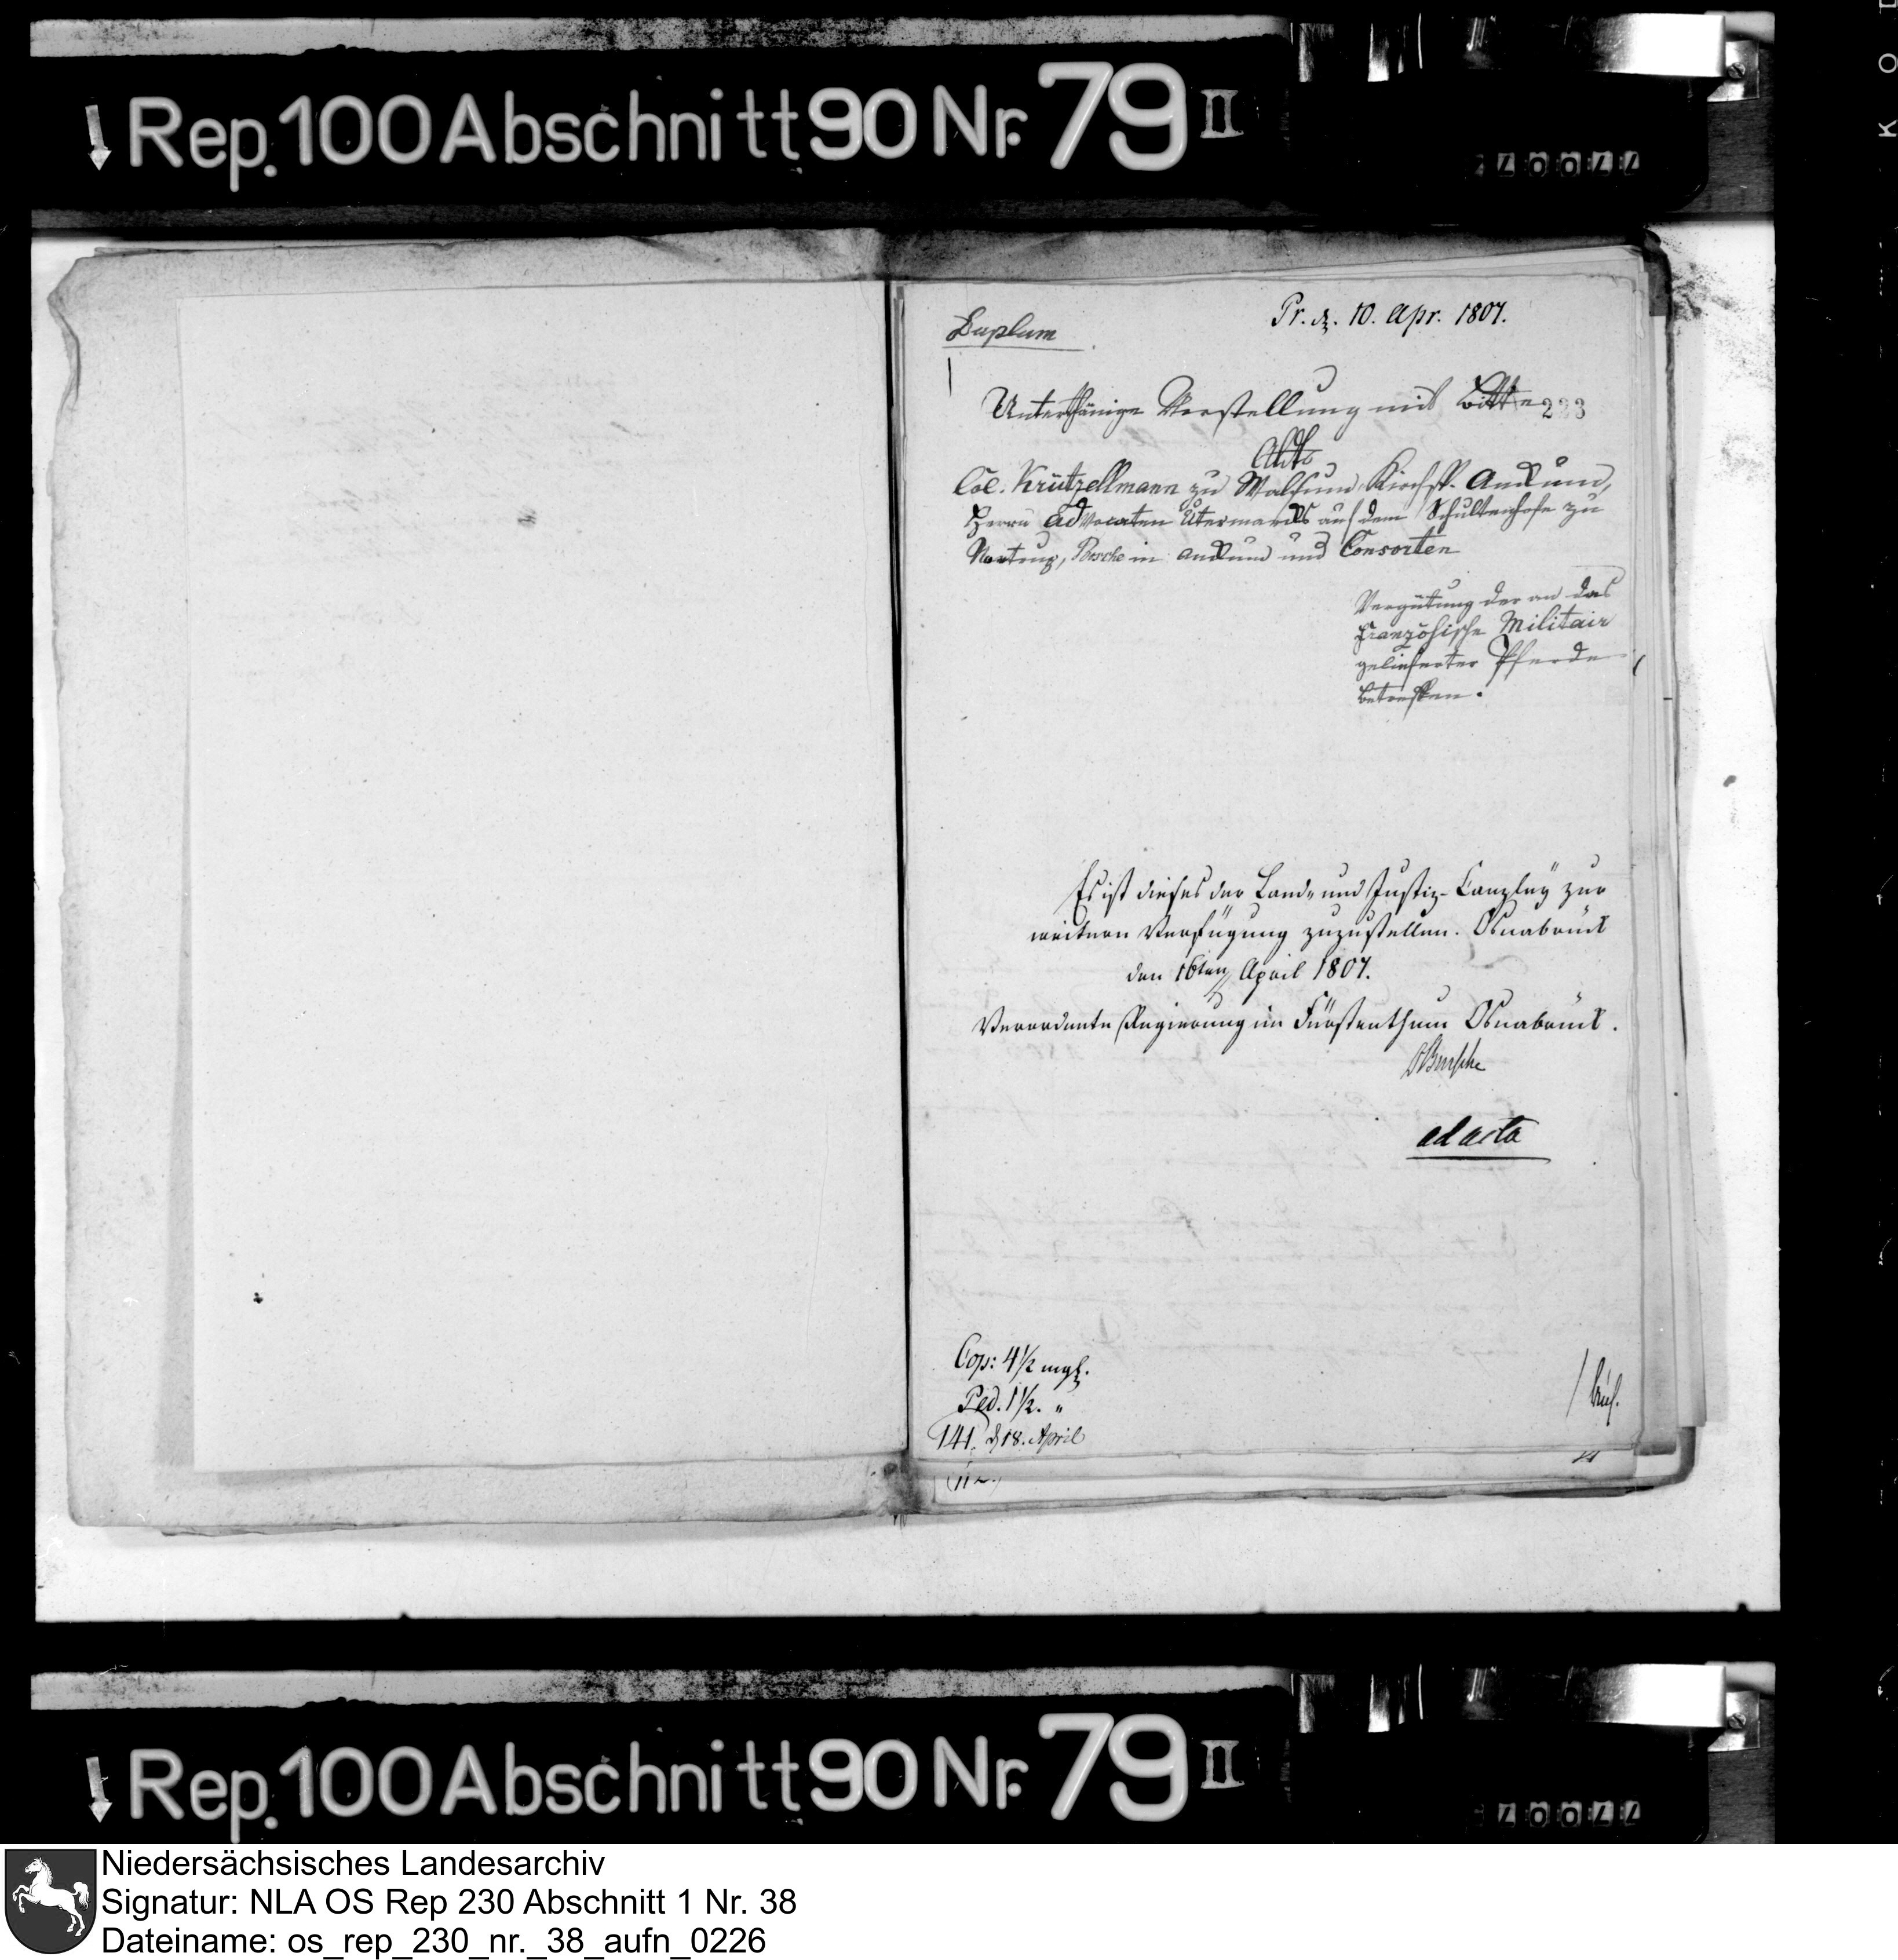 Rep. 100 Abschnitt 90 Nr. 79 II
Pr. d. 10. Apr. 1807.
Duplum
Unterthänige Vorstellung mit Bitte
233
Abts
Col. Krützellmann zu Walsum Kirchsp. Ankum,
Herrn Advocaten Utermarks auf dem Schultenhofe zu
Nortrup, in Ankum und Consorten
Vergütung der an das
Französische Militair
gelieferter Pferde
betreffen.
Es ist dieses der Land- und Justiz-Canzley zur
weitern Verfügung zuzustellen. Osnabrück
den 16ten April 1807.
Verordnete Regierung im Fürstenthum Osnabrück.
ad acta
Cop: 4 1/2 mgl.
Ped. 1 1/2. "
141. d 18. April
Rep. 100 Abschnitt 90 Nr. 79 II
Niedersächsisches Landesarchiv
Signatur: NLA OS Rep 230 Abschnitt 1 Nr. 38
Dateiname: os_rep_230_nr._38_aufn_0226